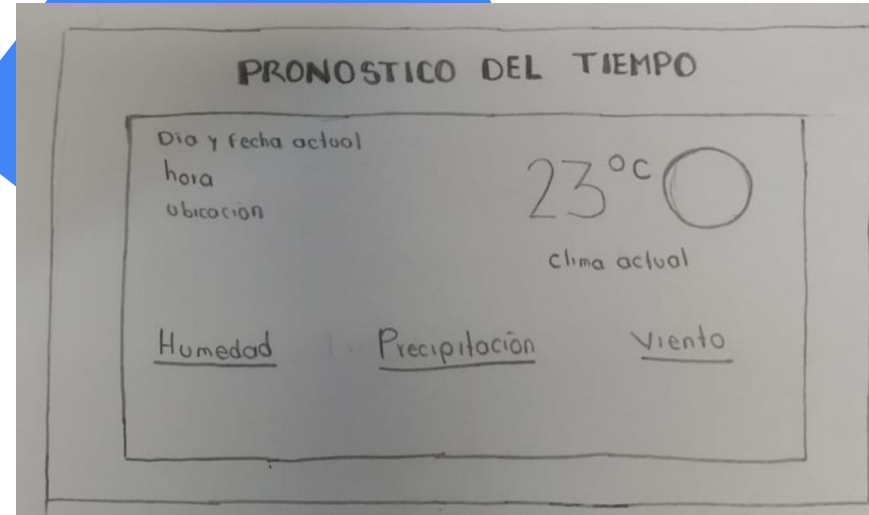 PRONOSTICO DEL TIEMPO
Dia y fecha actual
hora
ubicación
23°C
clima actual
Humedad Precipitación Viento